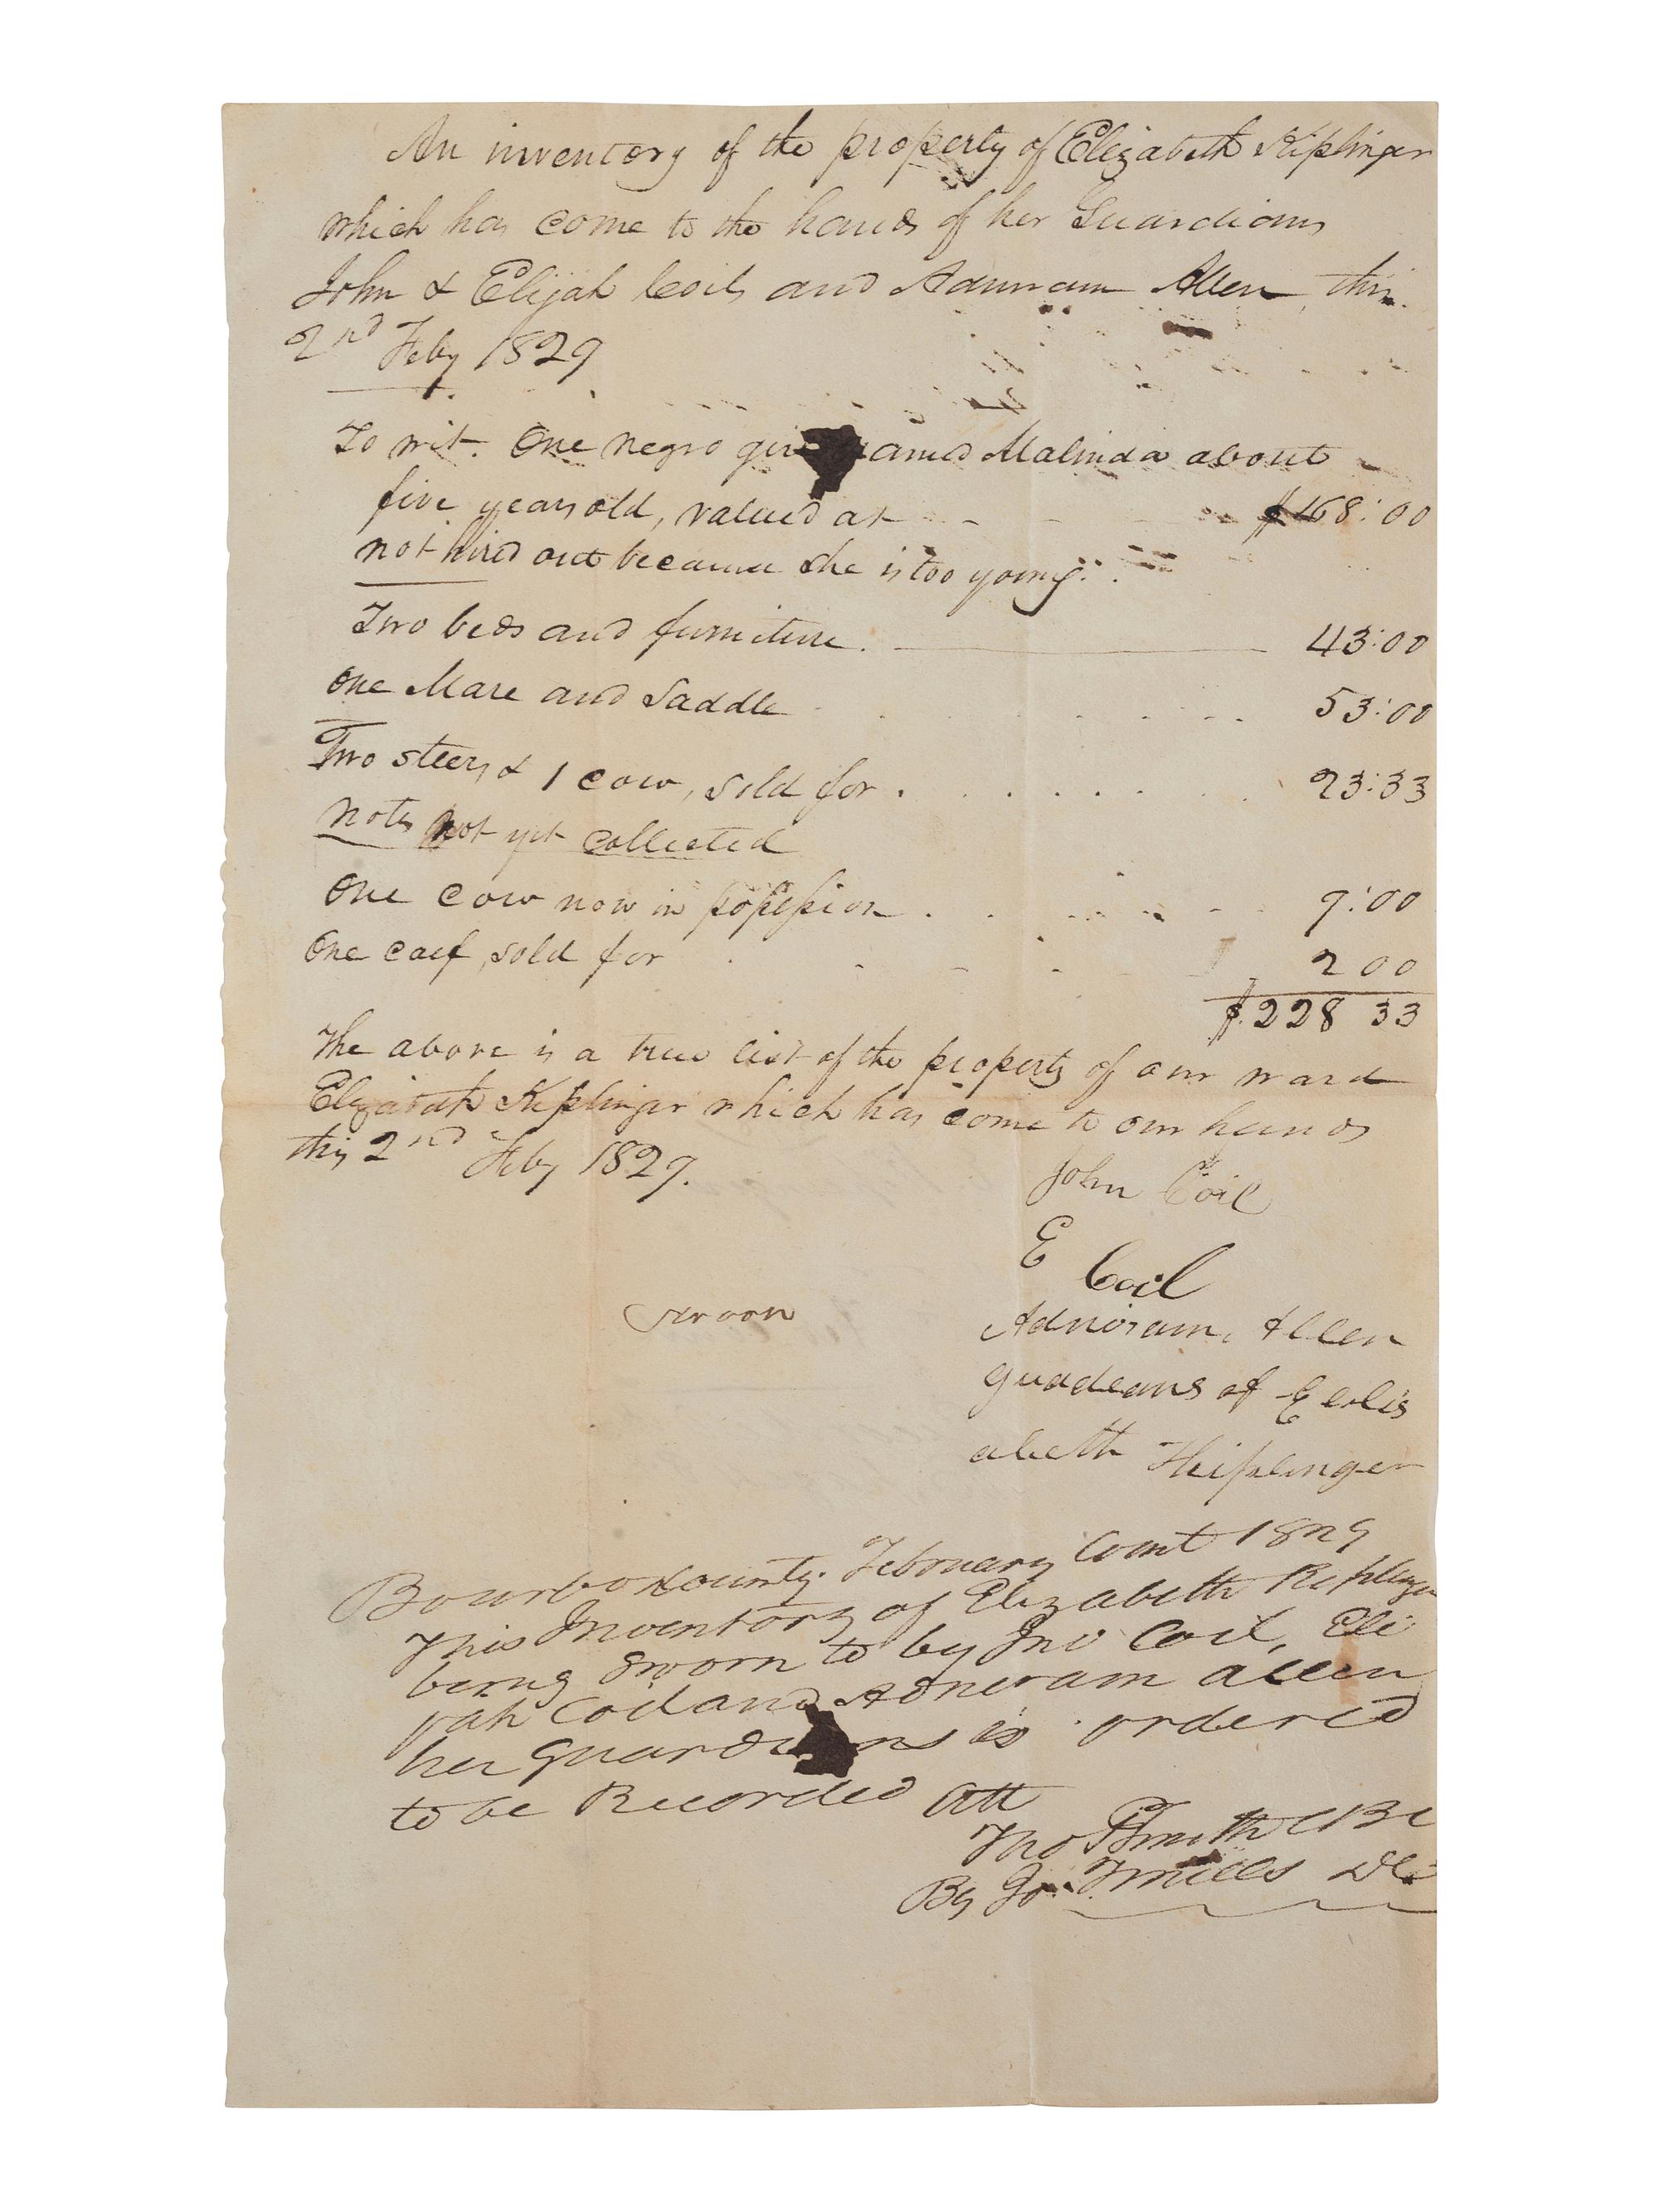 An inventory of the property of Elizabeth Kiplinger
which has come to the hands of her Guardians
John & Elijah Coils and Adniram Allen, this
2nd Feby 1829
To wit. One negro gir amed Malinda about
five years old, valued at $168:00
not hired out because she is too young.
Two beds and furniture. 43:00
One Mare and Saddle 53:00
Two steers & 1 cow, sold for 23:33
notes not yet collected
One cow now in possession 9:00
One calf, sold for 2 00
$.228 33
The above is a true list of the property of our ward
Elizabeth Kiplinger which has come to our hands
this 2nd Feby 1829.
John Coil
E Coil
sworn
Adniram Allen
guadeans of Eelis
abeth Kiplinger
Bourbon County. February Court 1829
This Inventory of Elizabeth Kiplinger
being sworn to by Jno Coil, Eli
jah Coil and Adneram Allen
her guardi ns is ordered
to be Recorded Att
Tho P Smith CBC
By Jo. Mills DC